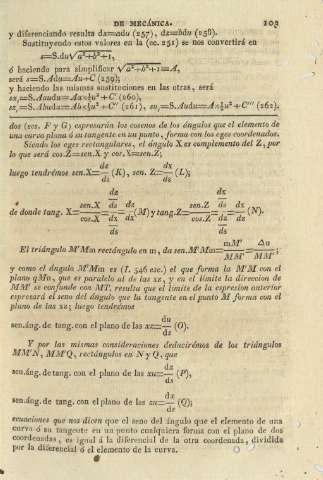 DE MECÁNICA. 103
y diferenciando resulta dx=adu (257), dz=bdu (258).
Sustituyendo estos valores en la (ec. 251) se nos convertirá en
s=S.du√a²+b²+1,
ó haciendo para simplificar √a²+b²+1=A,
será s=S.Adu=Au+C (259);
y haciendo las mismas sustituciones en las otras, será
sx,=S.Aaudu=Aa×½u²+C' (260),
sz,=S.Abudu=Ab×½u²+C'' (261), su,=S.Audu=A×½u²+C''' (262).
dos (ecs. F y G) espresarán los cosenos de los ángulos que el elemento de
una curva plana ó su tangente en su punto, forma con los eges coordenados.
Siendo los eges rectangulares, el ángulo X es complemento del Z, por
lo que será cos.Z=sen.X y cos.X=sen.Z;
luego tendrémos sen.X=dz/ds (K), sen. Z=dx/ds (L);
de donde tang. X=sen.X/cos.X=dz/ds/dx/ds=dz/dx (M) y tang.Z=sen.Z/cos.Z=dx/ds/dz/ds=dx/dz (N).
El triángulo M'Mm rectángulo en m, da sen.M'Mm=mM'/MM'=Δu/MM';
y como el ángulo M'Mm es (I. 546 esc.) el que forma la M'M con el
plano qMn, que es paralelo al de las xz, y en el límite la direccion de
MM' se confunde con MT, resulta que el límite de la espresion anterior
espresará el seno del ángulo que la tangente en el punto M forma con el
plano de las xz; luego tendrémos
sen.áng. de tang. con el plano de las xz=du/ds (O).
Y por las mismas consideraciones deducirémos de los triángulos
MM'N, MM'Q, rectángulos en N y Q, que
sen.áng. de tang. con el plano de las zu=dx/ds (P),
sen.áng. de tang. con el plano de las xu=dz/ds (Q);
ecuaciones que nos dicen que el seno del ángulo que el elemento de una
curva ó su tangente en un punto cualquiera forma con el plano de dos
coordenadas, es igual á la diferencial de la otra coordenada, dividida
por la diferencial ó el elemento de la curva.